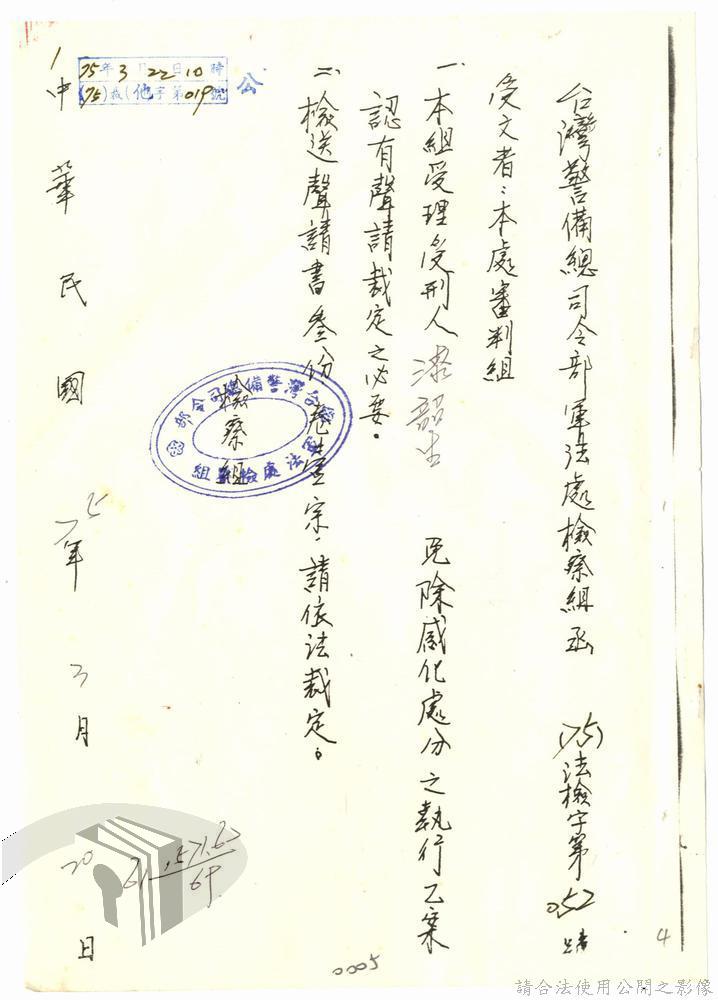 台灣警備總司令部軍法處檢察組函 (75)法檢字第052號
受文者：本處審判組
一、本組受理受刑人 韶生 免除感化處分之執行乙案
認有聲請裁定之必要。
二、檢送聲請書叁份卷壹宗，請依法裁定。
檢察組
台灣警備總司令部
軍法處檢察組
75年3月22日10時
(75)裁(他字第019號
公
中華民國 七五年 3月 20日
0005
4
請合法使用公開之影像